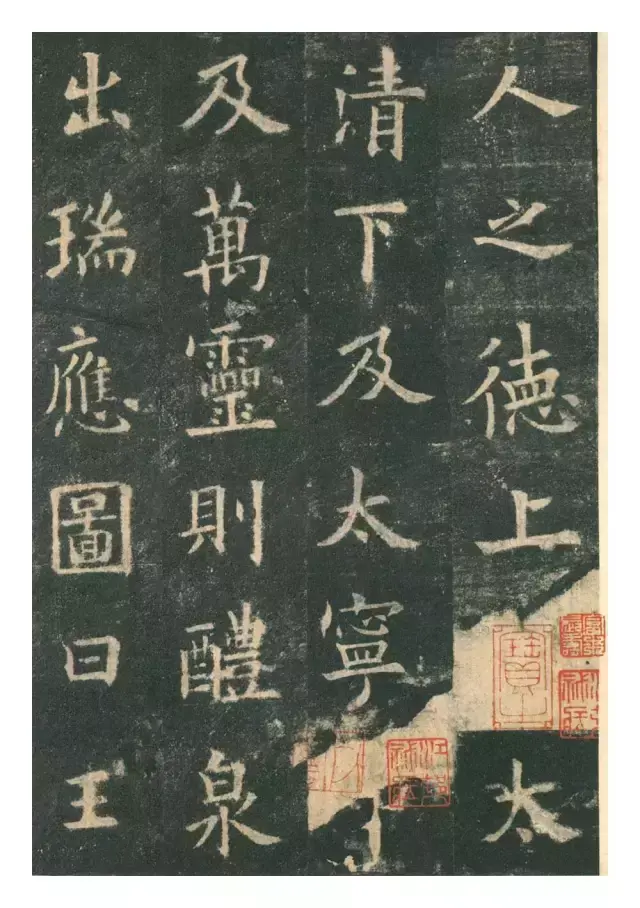 人之徳上太
清下及太寧
及萬靈則醴泉
出瑞應圖曰王